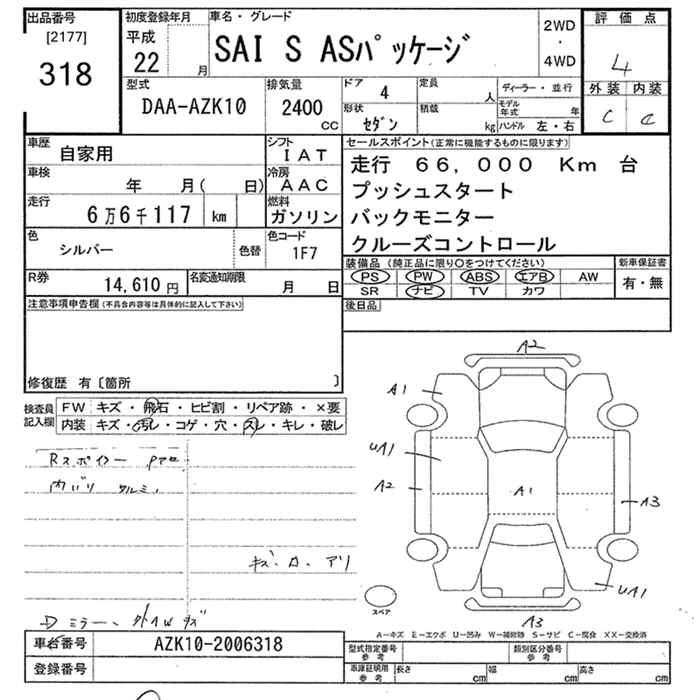 出品番号 初度登録年月 車名・グレード 2WD・4WD 評価点
[2177] 平成
318 22 月 SAI S ASパッケージ 4
型式 排気量 ドア 定員 ディーラー・並行 外装 内装
DAA-AZK10 2400 CC 4 人 モデル年式 年 C C
形状 積載 ハンドル 左・右
セダン kg
車歴 自家用 シフト IAT セールスポイント(正常に機能するものに限ります)
車検 年 月( 日) 冷房 AAC 走行 66,000 Km 台
走行 6万6千117 km 燃料 ガソリン プッシュスタート
バックモニター
色 シルバー 色替 色コード 1F7 クルーズコントロール
R券 14,610円 名変通知期限 月 日 装備品(純正品に限り○をつけてください) 新車保証書
PS PW ABS エアB AW 有・無
SR ナビ TV カワ
注意事項申告欄(不具合内容等は具体的に記入して下さい) 後日品
修復歴 有〔箇所 〕
検査員記入欄 FW キズ・飛石・ヒビ割・リペア跡・×要
内装 キズ・汚レ・コゲ・穴・スレ・キレ・破レ
A2
A1
UA1
A2
A1
A3
UA1
A3
キズ・カ・アリ
スペア
A-キズ E-エクボ U-凹み W-補修跡 S-サビ C-腐食 XX-交換済
車台番号 AZK10-2006318 型式指定番号 参考 類別区分番号 参考
登録番号 車庫証明用 参考 長さ cm 幅 cm 高さ cm